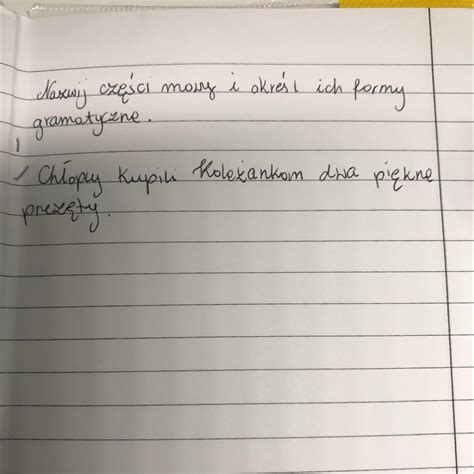 Nazwij części mowy i określ ich formy
gramatyczne.
Chłopcy kupili koleżankom dwa piękne
prezęty.